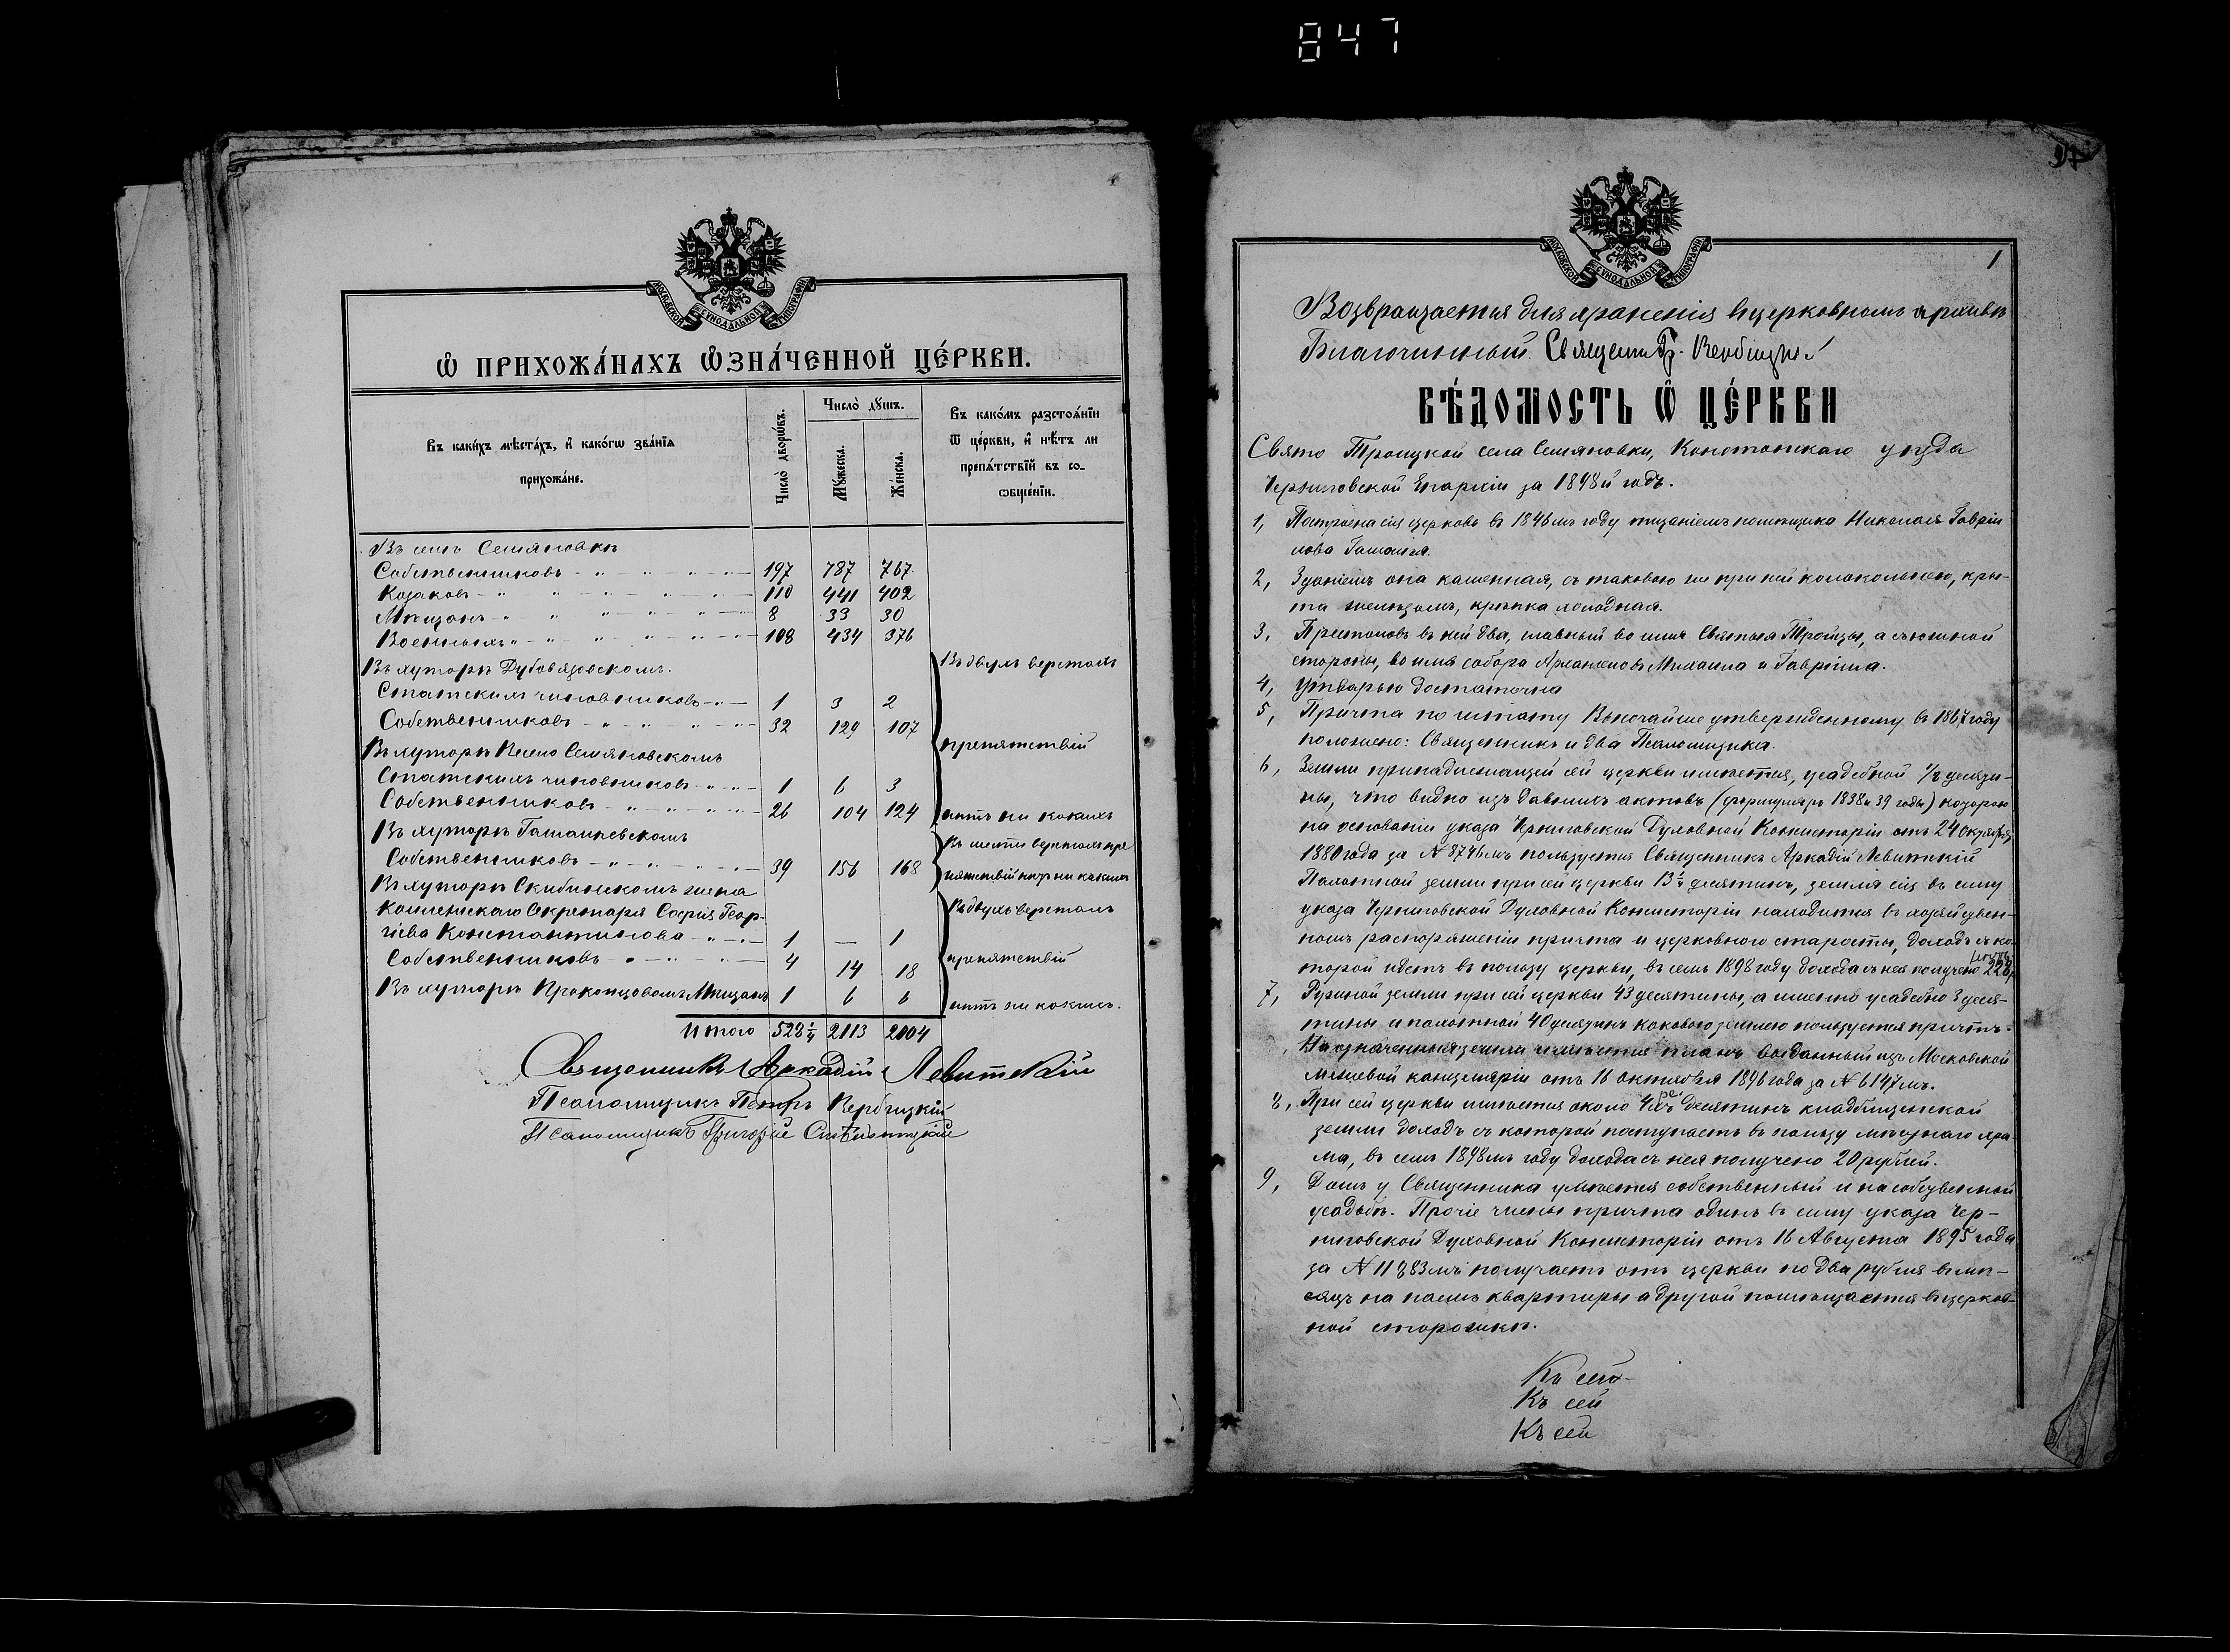 847
МОСКОВСКОЙ СѴНОДАЛЬНОЙ ТИПОГРАФІИ
Ѽ ПРИХОЖА́НАХЪ ѼЗНА́ЧЕННОЙ ЦЕ́РКВИ.
Въ каки́хъ мѣста́хъ, и҆ како́гѡ зва́нїѧ
прихожа́не.
Число̀ дворѡ́въ.
Число̀ дꙋ́шъ.
Мꙋ́жеска.
Же́нска.
Въ како́мъ разстоѧ́нїи
ѿ це́ркви, и҆ нѣ́тъ ли
препѧ́тствїй въ со-
ѻбще́нїи.
Въ селѣ Семяновкѣ
Собственниковъ 197 787 767
Козаковъ 110 441 402
Мѣщанъ 8 33 30
Военныхъ 108 434 376
Въ хуторѣ Дубовязовскомъ. Въ двухъ верстахъ
Статскихъ чиновниковъ 1 3 2
Собственниковъ 32 129 107
Въ хуторѣ Семяновскомъ препятствій
Статскихъ чиновниковъ 1 6 3
Собственниковъ 26 104 124 нѣтъ ни какихъ
Въ хуторѣ Гамалѣевскомъ Въ шести верстахъ пре
Собственниковъ 39 156 168 пятствій нѣтъ ни какихъ
Въ хуторѣ Скибинскомъ жена
Коллежскаго Секретаря Софія Геор- Въ двухъ верстахъ
гіева Константинова 1 — 1
Собственниковъ 4 14 18 препятствій
Въ хуторѣ Прокопцовомъ Мѣщанъ 1 6 6 нѣтъ ни какихъ.
Итого 528 1/4 2113 2004
Священникъ Аркадій Левитскій
Псаломщикъ Петръ Вербицкій
Псаломщикъ Григорій
97
1
МОСКОВСКОЙ СѴНОДАЛЬНОЙ ТИПОГРАФІИ
Возвращается для храненія въ церковномъ архивѣ
Благочинный Священ. Гр. Вербицкій
ВѢ́ДОМОСТЬ Ѽ ЦЕ́РКВИ
Свято Троицкой села Семяновки, Конотопскаго уѣзда
Черниговской Епархіи за 1898й годъ.
1, Построена сія церковь въ 1846мъ году тщаніемъ помѣщика Николая Гавріи
лова Гамалѣя.
2, Зданіемъ она каменная, съ таковою же при ней колокольнею, кры-
та желѣзомъ, крѣпка холодная.
3, Престоловъ въ ней два, главный во имя Святыя Тройцы, а съ южной
стороны, во имя собора Архангеловъ Михаила и Гавріила.
4, Утварью достаточна
5, Причта по штату Высочайше утвержденному въ 1867 году
положено: Священникъ и два Псаломщика.
6, Земли принадлежащей сей церкви имѣется, усадебной 1/2 десяти-
ны, что видно изъ давнихъ актовъ (формуляръ 1838 и 39 годы) которою
на основаніи указа Черниговской Духовной Консисторіи отъ 24 октября
1880 года за № 8746мъ пользуется Священникъ Аркадій Левитскій
Пахотной земли при сей церкви 13 десятинъ, земля сія въ силу
указа Черниговской Духовной Консисторіи находится въ хозяйствен-
номъ распоряженіи причта и церковного старосты, доходъ съ ко-
торой идетъ въ пользу церкви, въ семъ 1898 году дохода съ нея получено 228 р
7, Ружной земли при сей церкви 43 десятины, а именно усадебно 3 деся-
тины и пахотной 40 десятинъ каковою землею пользуется причтъ.
На означенныя земли имѣется планъ выданный изъ Московской
межевой канцеляріи отъ 16 октября 1896 года за № 6147мъ.
8, При сей церкви имѣется около 4хъ десятинъ кладбищенской
земли доходъ съ которой поступаетъ въ пользу мѣстнаго хра-
ма, въ семъ 1898мъ году дохода съ нея получено 20 рублей.
9, Домъ у Священника имѣется собственный и на собственной
усадьбѣ. Прочіе члены причта одинъ въ силу указа Чер-
ниговской Духовной Консисторіи отъ 16 Августа 1895 года
за № 11383мъ получаетъ отъ церкви по два рубля въ мѣ-
сяцъ на наемъ квартиры а другой помѣщается въ церков-
ной сторожкѣ.
Къ сей
Къ сей
Къ сей